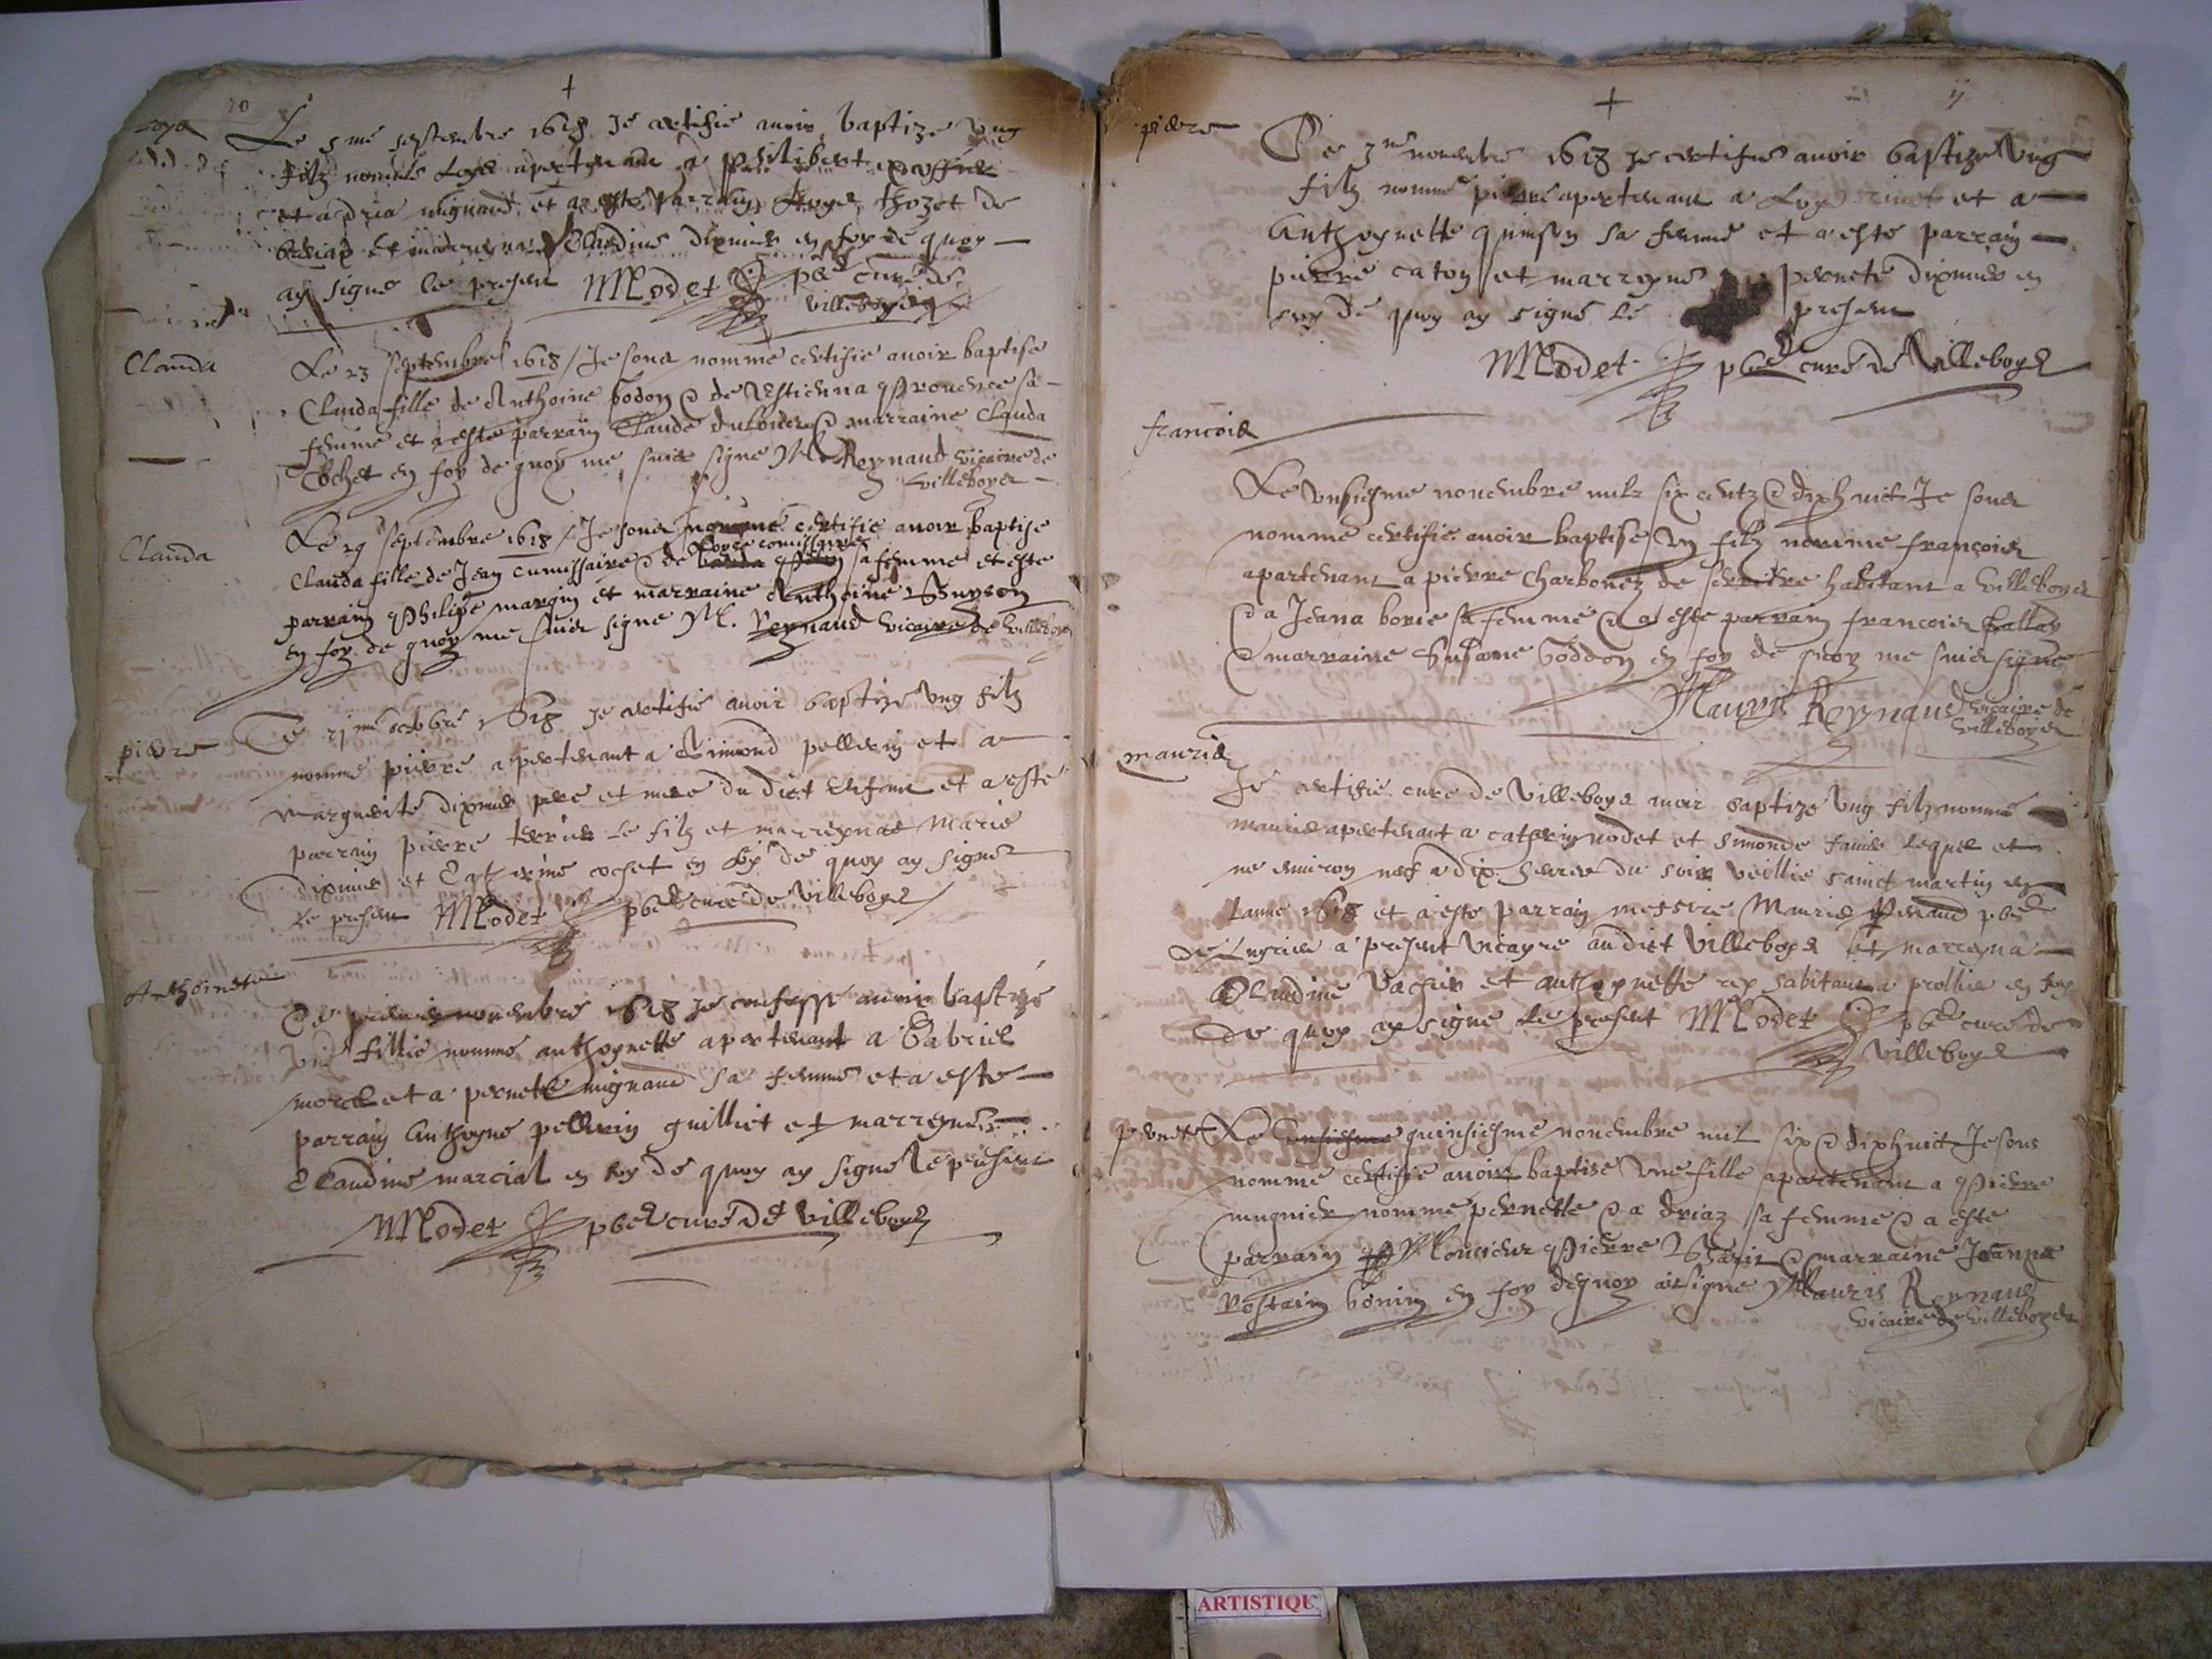 +
20
Loys
Le 5 me septembre 1618 Je certifie avoir baptize ung
filz nomme Loys apertenant a philibert
et a dria mignaud et a este parrain thozet de
et Claudine diximier en foy de quoy
ay signe le present MLodet pbre curé de
villeboys
Clauda
Le 23 septembre 1618 / Je soubz nomme certifie avoir baptise
Clauda fille de Anthoine bodon & de Estienna provence sa
femme et a este parrain Claude & marraine Clauda
Cochet en foy de quoy me suis signe M. Reynaud vicaire de
villeboyes
Clauda
Le 29 septembre 1618 / Je soubz nomme certifie avoir baptise
Clauda fille de Jean cumissaire & de sa femme et este
parrain Philipe margin et marraine Anthoine Buyson
en foy de quoy me suis signe M. Reynaud vicaire de villeboys
pierre
Ce 21 me octobre 1618 je certifie avoir baptize ung filz
nomme pierre apertenant a Aimond pellerin et a
marguerite diximier pere et mere du dict enfant et a este
parrain pierre terrier le filz et marreynes Marie
diximier et Catherine cochet en foy de quoy ay signer
le present MLodet pbre curé de villeboys
Anthoinete
Ce premier novembre 1618 je confesse avoir baptizé
une fillie nommé anthoynette apertenant a Gabriel
morel et a pernete mignaud sa femme et a este
parrain Anthoyne pellerin guilliet et marreyne
Claudine marcial en foy de quoy ay signé le present
MLodet pbre curé de villeboys
+
ij
pierre
Ce 3 me novembre 1618 je certifie avoir baptize ung
filz nommé pierre apertenant a Loys rinet et a
Anthoynette quinson sa femme et a esté parrain
pierre caton et marreyne pernete diximier en
foy de quoy ay signé le present
MLodet pbre curé de Villeboys
francois
Le unsiesme novembre milz six centz & dixhuict Je soubz
nomme certifie avoir baptise un filz nomme françois
apartenant a pierre Charbonez de serriere habitant a villeboyes
& a Jeana borie sa femme & a este parrain francois ballay
& marraine Susanne boddon en foy de quoy me suis signé
Mauris Reynaud vicaire de
villeboyes
mauris
Je certifie curé de Villeboys avoir baptize ung filz nommé
mauris apertenant a catherin nodet et simonde favier lequel et
ne environ neuf a dix heures du soir veillie sainct martin en
lanne 1618 et a esté parrain messire Mauris Renaud pbre
de Lugrieu a present vicayre audict Villeboys et marreyna
Claudine Vachier et anthoynette rey habitant a prollieu en foy
de quoy ay signé le present MLodet pbre curé de
villeboys
pernete
Le unsiesme quinsiesme novembre mil six & dixhuict Je soubs
nomme certifie avoir baptise une fille apartenant a Pierre
mugnier nomme pernette & a driaz sa femme & a este
parrain Monsieur Pierre & marraine Jeanne
Rostain bonin en foy dequoy ai signe Mauris Reynaud
vicaire de villeboyes
ARTISTIQU